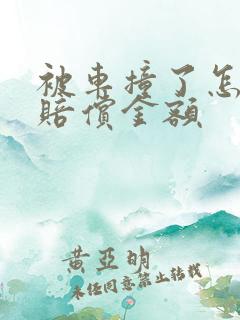 被車撞了怎
賠償金額
黃亞明
未经同意禁止转载